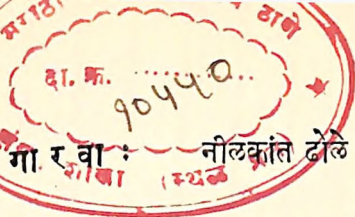 मराठी ठाणे
दा. क्र. १०५५०
गा र वा : नीलकांत ढोले
शाखा (स्थळ